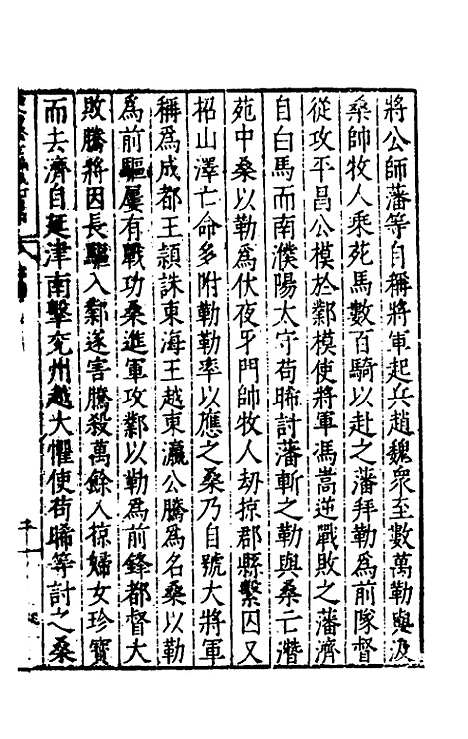 將公師藩等自稱將軍起兵趙魏衆至數萬勒與汲
桑帥牧人乘苑馬數百騎以赴之藩拜勒爲前隊督
從攻平昌公模於鄴模使將軍馮嵩逆戰敗之藩濟
自白馬而南濮陽太守苟晞討藩斬之勒與桑亡潛
苑中桑以勒爲伏夜牙門帥牧人刼掠郡縣繫囚又
招山澤亡命多附勒勒率以應之桑乃自號大將軍
稱爲成都王頴誅東海王越東瀛公騰爲名桑以勒
爲前驅屢有戰功桑進軍攻鄴以勒爲前鋒都督大
敗騰將因長驅入鄴遂害騰殺萬餘人掠婦女珍寶
而去濟自延津南擊兖州越大懼使苟晞等討之桑